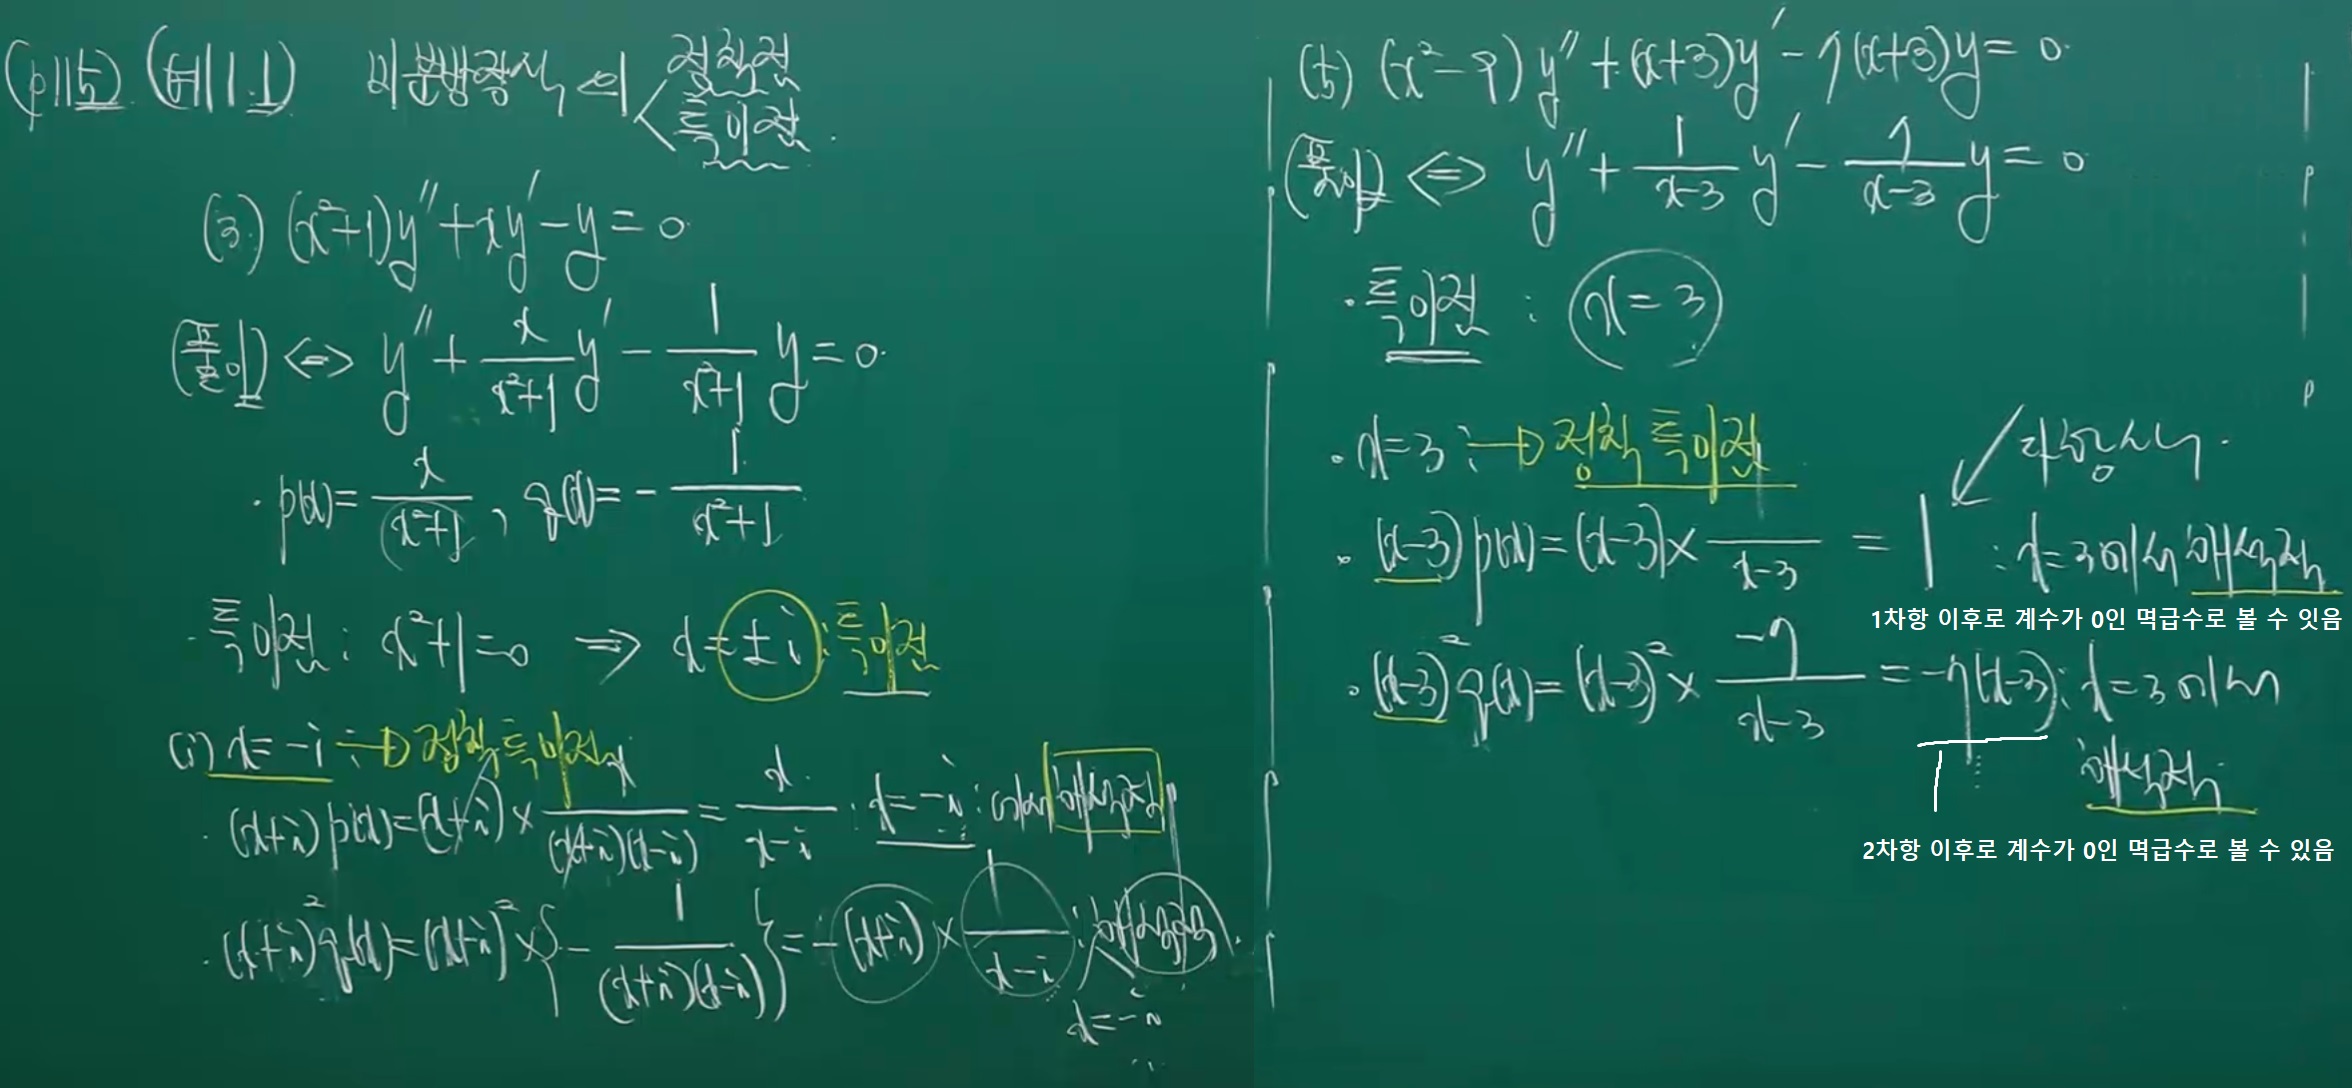 (p115) (예제1.1) 미분방정식의 < 정칙점
특이점.
(3) (x²+1)y″+xy′-y=0.
(풀이) <=> y″ + x/(x²+1) y′ - 1/(x²+1) y = 0.
· p(x) = x/(x²+1), q(x) = - 1/(x²+1)
· 특이점 : x²+1=0 => x=±i : 특이점
(i) x=-i : → 정칙 특이점
· (x+i)p(x)=(x+i) × x/((x+i)(x-i)) = x/(x-i) : x=-i : 에서 해석적
· (x+i)²q(x)=(x+i)² × { - 1/((x+i)(x-i)) } = -(x+i) × 1/(x-i) : 해석적.
x=-i
(5) (x²-9)y″+(x+3)y′-7(x+3)y=0.
(풀이) <=> y″ + 1/(x-3) y′ - 7/(x-3) y = 0
· 특이점 : x=3
· x=3 : → 정칙 특이점
다항식.
· (x-3)p(x)=(x-3)× 1/(x-3) = 1 : x=3에서 해석적
1차항 이후로 계수가 0인 멱급수로 볼 수 잇음
· (x-3)²q(x)=(x-3)² × -7/(x-3) = -7(x-3) : x=3에서
해석적
2차항 이후로 계수가 0인 멱급수로 볼 수 있음